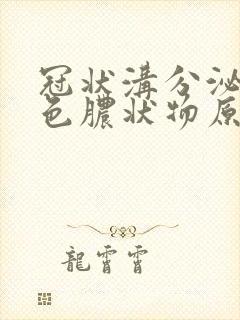 冠状溝分泌
色膿状物原
龍霄霄